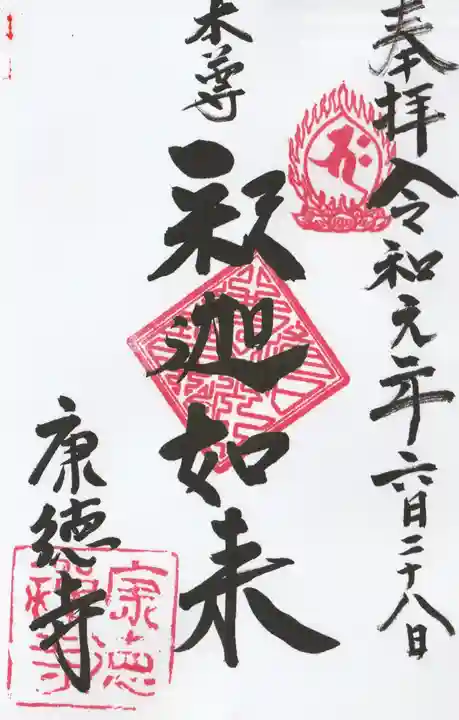 奉拝令和元年六月二十八日
本尊
釈迦如来
康徳寺
康徳
禅寺